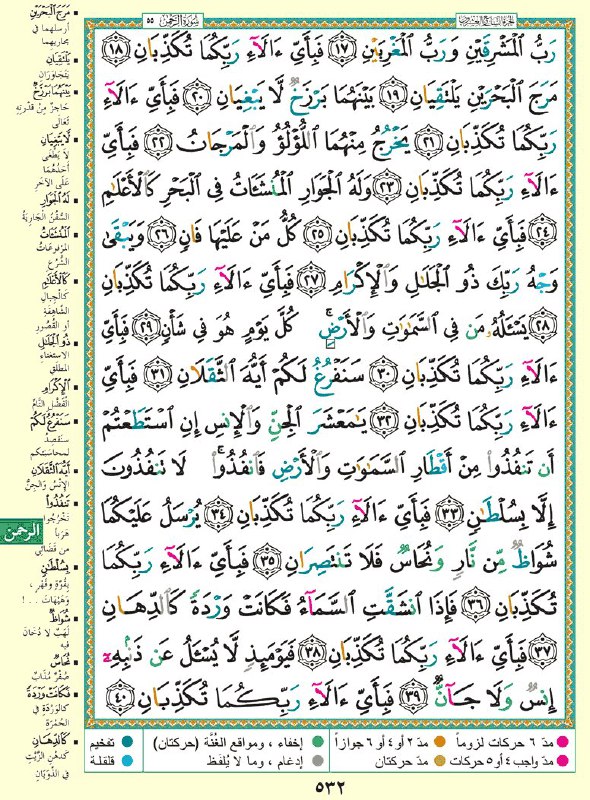 الجزء السابع والعشرون
سورة الرحمن ٥٥
رَبُّ ٱلْمَشْرِقَيْنِ وَرَبُّ ٱلْمَغْرِبَيْنِ ١٧ فَبِأَيِّ ءَالَآءِ رَبِّكُمَا تُكَذِّبَانِ ١٨
مَرَجَ ٱلْبَحْرَيْنِ يَلْتَقِيَانِ ١٩ بَيْنَهُمَا بَرْزَخٌ لَّا يَبْغِيَانِ ٢٠ فَبِأَيِّ ءَالَآءِ
رَبِّكُمَا تُكَذِّبَانِ ٢١ يَخْرُجُ مِنْهُمَا ٱللُّؤْلُؤُ وَٱلْمَرْجَانُ ٢٢ فَبِأَيِّ
ءَالَآءِ رَبِّكُمَا تُكَذِّبَانِ ٢٣ وَلَهُ ٱلْجَوَارِ ٱلْمُنشَـَٔاتُ فِي ٱلْبَحْرِ كَٱلْأَعْلَٰمِ
٢٤ فَبِأَيِّ ءَالَآءِ رَبِّكُمَا تُكَذِّبَانِ ٢٥ كُلُّ مَنْ عَلَيْهَا فَانٍ ٢٦ وَيَبْقَىٰ
وَجْهُ رَبِّكَ ذُو ٱلْجَلَٰلِ وَٱلْإِكْرَامِ ٢٧ فَبِأَيِّ ءَالَآءِ رَبِّكُمَا تُكَذِّبَانِ
٢٨ يَسْـَٔلُهُۥ مَن فِي ٱلسَّمَٰوَٰتِ وَٱلْأَرْضِ ۚ كُلَّ يَوْمٍ هُوَ فِي شَأْنٍ ٢٩ فَبِأَيِّ
ءَالَآءِ رَبِّكُمَا تُكَذِّبَانِ ٣٠ سَنَفْرُغُ لَكُمْ أَيُّهَ ٱلثَّقَلَانِ ٣١ فَبِأَيِّ
ءَالَآءِ رَبِّكُمَا تُكَذِّبَانِ ٣٢ يَٰمَعْشَرَ ٱلْجِنِّ وَٱلْإِنسِ إِنِ ٱسْتَطَعْتُمْ
أَن تَنفُذُوا۟ مِنْ أَقْطَارِ ٱلسَّمَٰوَٰتِ وَٱلْأَرْضِ فَٱنفُذُوا۟ ۚ لَا تَنفُذُونَ
إِلَّا بِسُلْطَٰنٍ ٣٣ فَبِأَيِّ ءَالَآءِ رَبِّكُمَا تُكَذِّبَانِ ٣٤ يُرْسَلُ عَلَيْكُمَا
شُوَاظٌ مِّن نَّارٍ وَنُحَاسٌ فَلَا تَنتَصِرَانِ ٣٥ فَبِأَيِّ ءَالَآءِ رَبِّكُمَا
تُكَذِّبَانِ ٣٦ فَإِذَا ٱنشَقَّتِ ٱلسَّمَآءُ فَكَانَتْ وَرْدَةً كَٱلدِّهَانِ
٣٧ فَبِأَيِّ ءَالَآءِ رَبِّكُمَا تُكَذِّبَانِ ٣٨ فَيَوْمَئِذٍ لَّا يُسْـَٔلُ عَن ذَنۢبِهِۦٓ
إِنسٌ وَلَا جَآنٌّ ٣٩ فَبِأَيِّ ءَالَآءِ رَبِّكُمَا تُكَذِّبَانِ ٤٠
مَرَجَ الْبَحْرَيْنِ
أرسلهما في
مجاريهما
يَلْتَقِيَانِ
يَتَجَاوَرَان
بَيْنَهُمَا بَرْزَخٌ
حَاجِزٌ مِنْ قُدْرَتِهِ
تَعَالَى
لَا يَبْغِيَانِ
لا يَطْغَى
أحَدُهُمَا
عَلَى الآخرِ
لَهُ الْجَوَارِ
السُّفُنُ الجَارِيَةُ
الْمُنْشَآتُ
المَرْفوعَاتُ
الشُّرُعِ
كَالْأَعْلَامِ
كَالجِبَالِ
الشاهِقةِ
أو القُصُورِ
ذُو الْجَلَالِ
الاستغناءِ
المطلَق
الْإِكْرَامِ
الفَضْلِ التَّامِّ
سَنَفْرُغُ لَكُمْ
سنقصِدُ
لمحاسَبَتِكم
أَيُّهَ الثَّقَلَانِ
الإنْسُ والجِنُّ
تَنْفُذُوا
تَخْرُجُوا
هَرَباً
من قَضَائِي
بِسُلْطَانٍ
بِقُوَّةٍ وقَهْرٍ ،
وهَيْهَاتَ ...!
شُوَاظٌ
لَهَبٌ لا دُخَانَ
فِيهِ
نُحَاسٌ
صُفْرٌ مُذَابٌ
فَكَانَتْ وَرْدَةً
كالوَرْدَةِ فِي
الحُمْرَةِ
كَالدِّهَانِ
كَدُهنِ الزَّيْتِ
في الذَّوَبَانِ
الرحمن
مدّ ٦ حركات لزوماً
مدّ ٢ أو ٤ أو ٦ جوازاً
إخفاء ، ومواقع الغُنَّة (حركتان)
تفخيم
مدّ واجب ٤ أو ٥ حركات
مدّ حركتان
إدغام ، وما لا يُلفَظ
قلقلة
٥٣٢